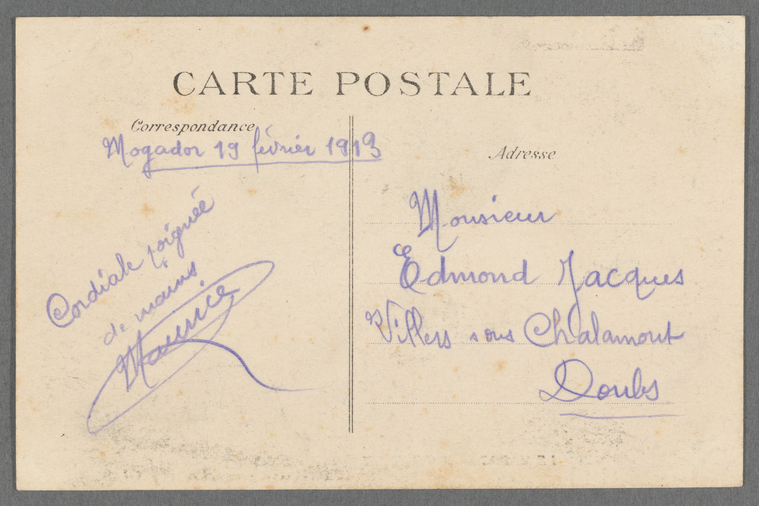 CARTE POSTALE
Correspondance
Mogador 19 février 1913
Adresse
Cordiale poignée
de mains
Maurice
Monsieur
Edmond Jacques
Villers sous Chalamont
Doubs